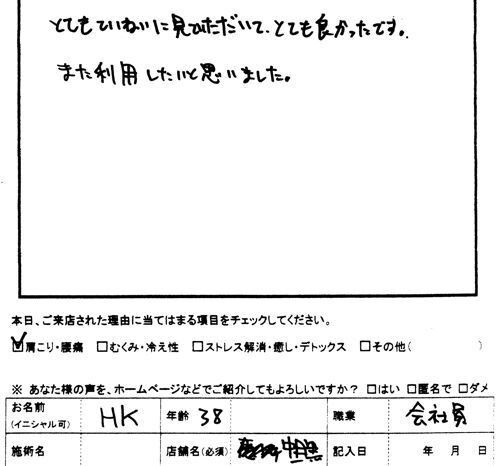 とてもていねいに見ていただいて、とても良かったです。
また利用したいと思いました。
本日、ご来店された理由に当てはまる項目をチェックしてください。
☑肩こり・腰痛 □むくみ・冷え性 □ストレス解消・癒し・デトックス □その他( )
※ あなた様の声を、ホームページなどでご紹介してもよろしいですか？ □はい □匿名で □ダメ
お名前 (イニシャル可) HK 年齢 38 職業 会社員
施術名 店舗名(必須) 記入日 年 月 日